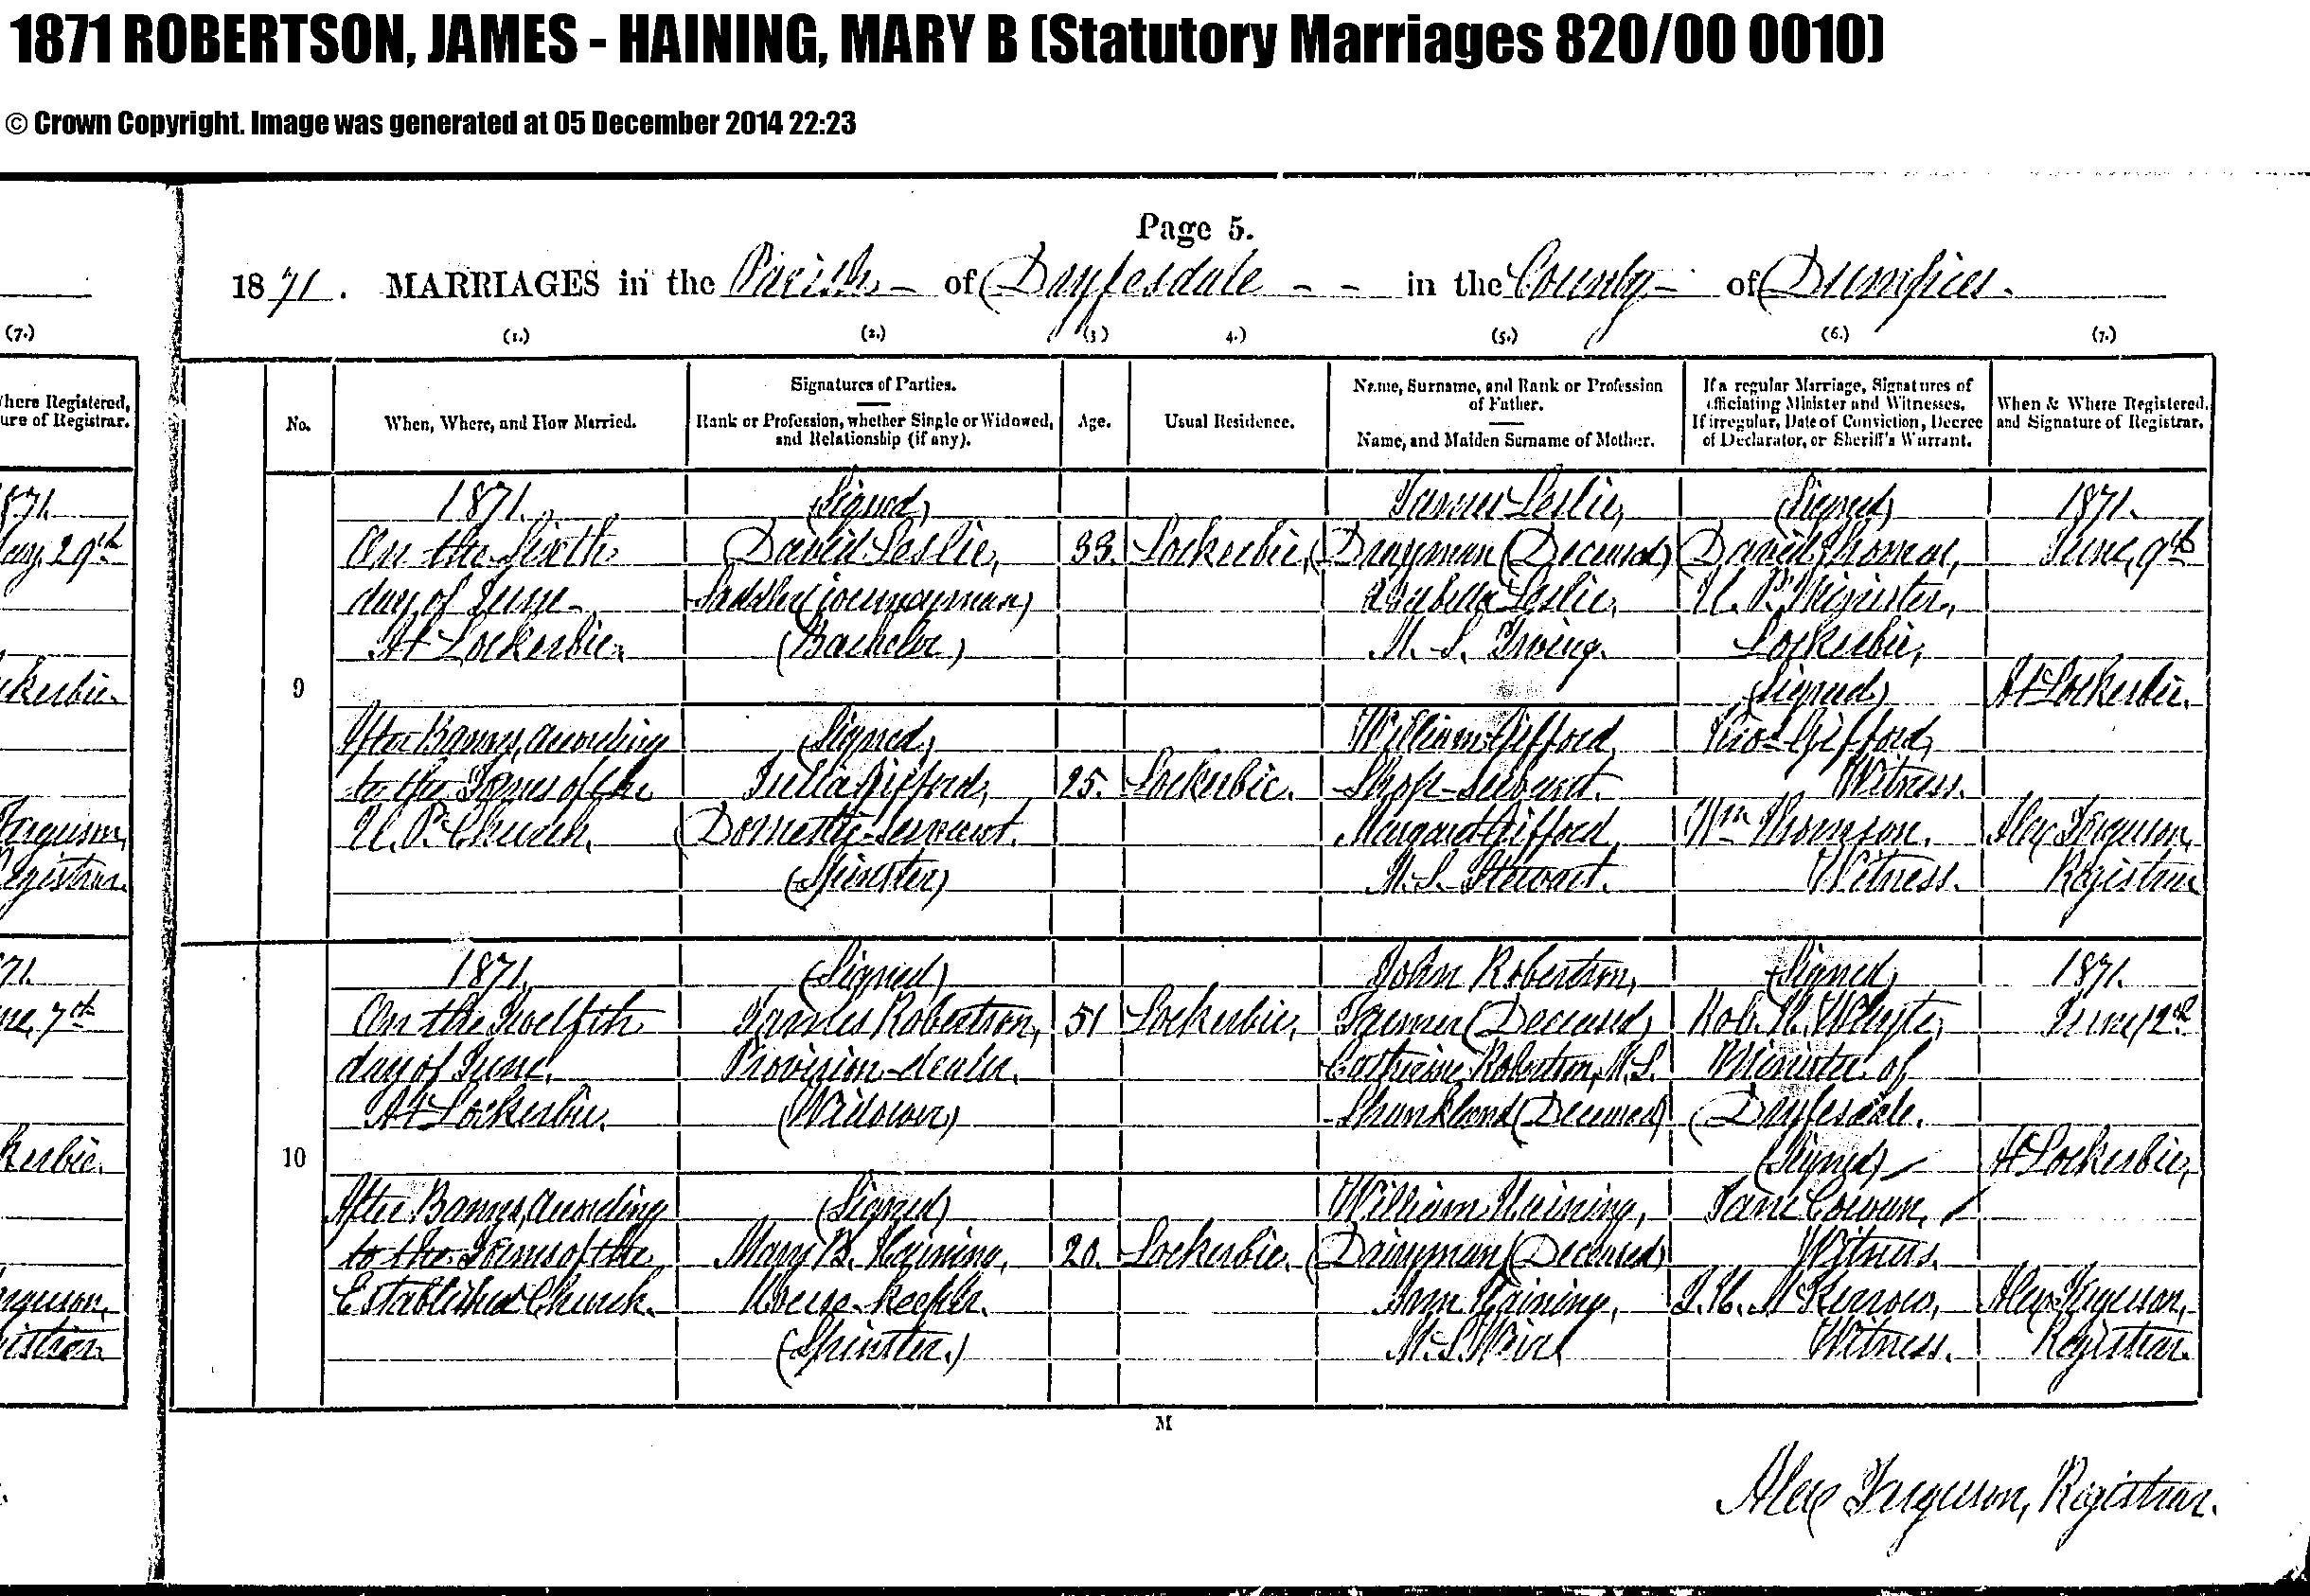 1871 ROBERTSON, JAMES - HAINING, MARY B (Statutory Marriages 820/00 0010)
© Crown Copyright. Image was generated at 05 December 2014 22:23
Page 5.
1871. MARRIAGES in the Parish of Dryfesdale in the County of Dumfries.
(7.) (1.) (2.) (3) 4.) (5.) (6.) (7.)
here Registered,
ure of Registrar.
No.
When, Where, and How Married.
Signatures of Parties.
Rank or Profession, whether Single or Widowed,
and Relationship (if any).
Age.
Usual Residence.
Name, Surname, and Rank or Profession
of Father.
Name, and Maiden Surname of Mother.
If a regular Marriage, Signatures of
officiating Minister and Witnesses.
If irregular, Date of Conviction, Decree
of Declarator, or Sheriff's Warrant.
When & Where Registered,
and Signature of Registrar.
871.
29th
kerbie.
Ferguson,
egistrar.
9
1871.
On the Sixth
day of June
At Lockerbie.
After Banns, according
to the Forms of the
U. P. Church.
(Signed)
David Leslie,
Saddler (journeyman)
(Bachelor)
33.
Lockerbie,
James Leslie,
Drayman (Deceased)
Isabella Leslie,
M. S. Irving.
(Signed)
David Thomas,
U. P. Minister,
Lockerbie,
(Signed)
Thos Gifford,
Witness.
Wm Thomson.
Witness.
(Signed)
Julia Gifford,
Domestic-servant.
(Spinster)
25.
Lockerbie.
William Gifford,
Margaret Gifford
M. S. Stewart.
1871.
June, 9th
At Lockerbie.
Alex Ferguson,
Registrar
71.
ne, 7th
kerbie.
rguson,
istrar.
10
1871.
On the Twelfth
day of June.
At Lockerbie.
After Banns, according
to the Forms of the
Established Church.
(Signed)
James Robertson,
Provision-dealer.
(Widower)
51
Lockerbie,
John Robertson,
Farmer (Deceased)
Catherine Robertson, M.S.
Shankland (Deceased)
(Signed)
Rob. H. Whyte,
Minister of
Dryfesdale.
(Signed)
Jane Cowan,
Witness.
J. H. McKerrow,
Witness.
(Signed)
Mary B. Haining,
House-keeper.
(Spinster.)
20.
Lockerbie.
William Haining,
Dairyman (Deceased)
Ann Haining,
M.S. Weir
1871.
June 12th
At Lockerbie,
Alex Ferguson,
Registrar.
M
Alex Ferguson, Registrar.